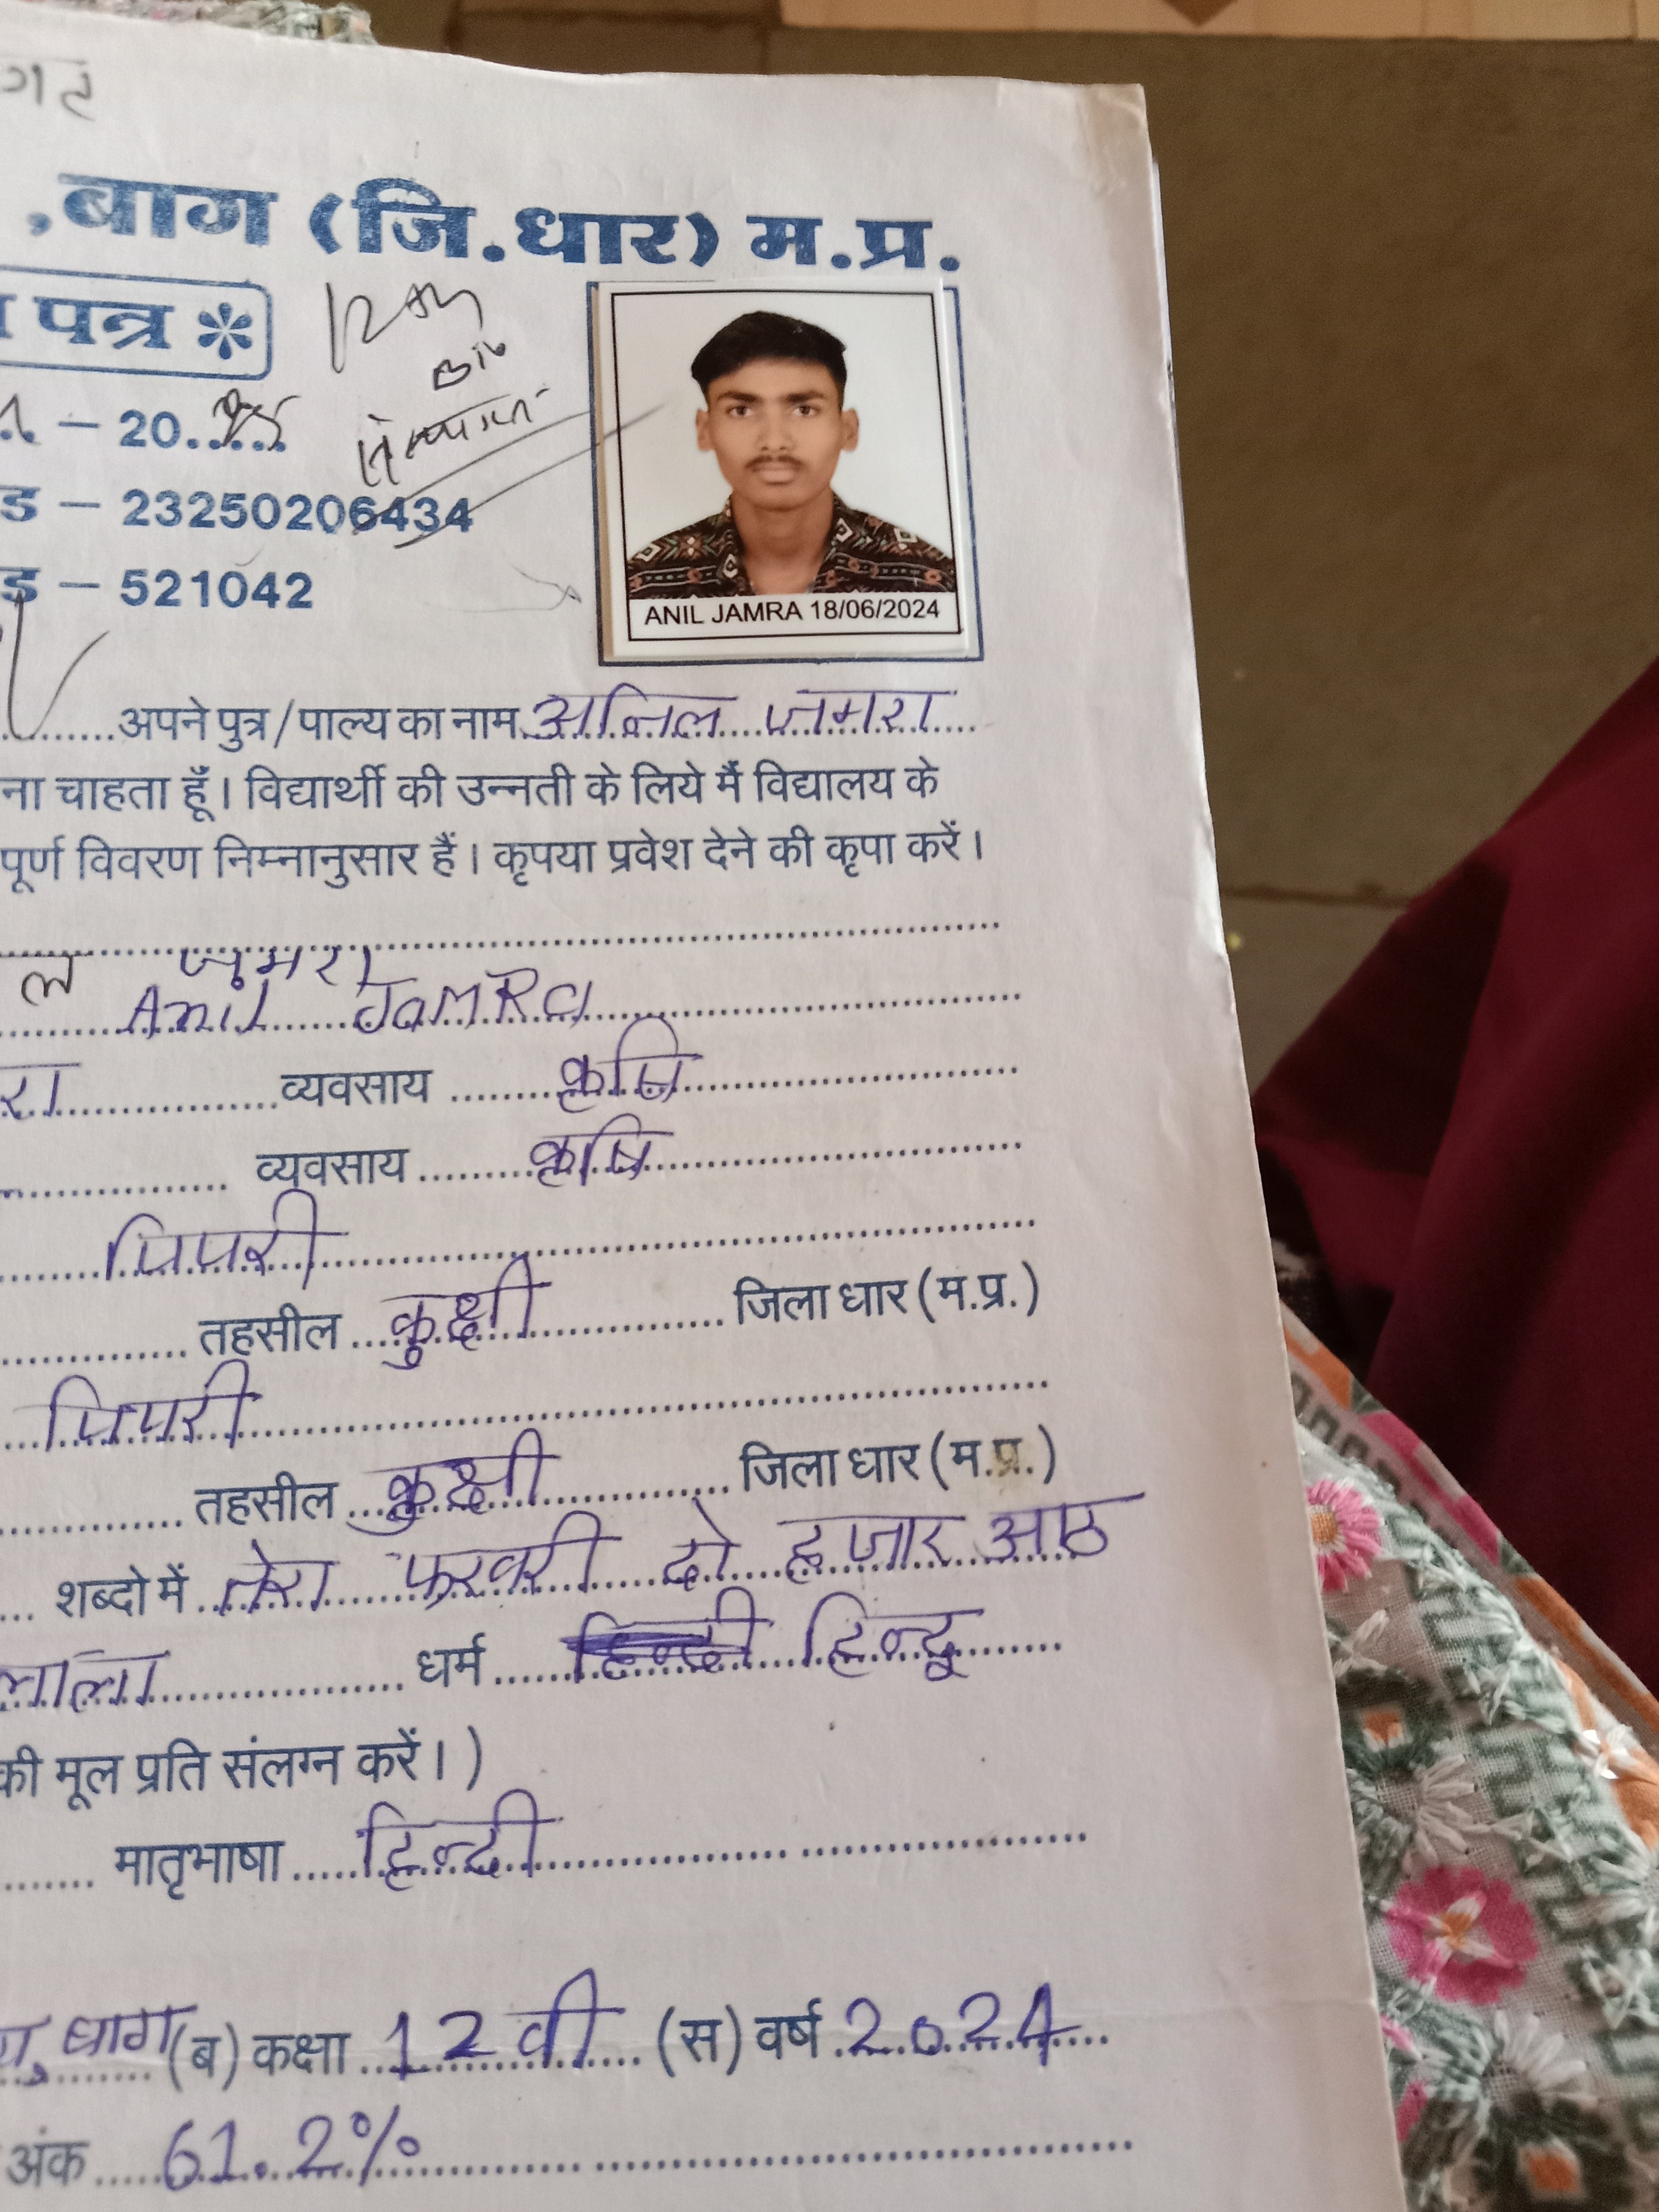 ,बाग (जि.धार) म.प्र.
पत्र *
– 20..25...
ड – 23250206434
ड – 521042
ANIL JAMRA 18/06/2024
........अपने पुत्र/पाल्य का नाम.अनिल....जमरा....
ना चाहता हूँ। विद्यार्थी की उन्नती के लिये मैं विद्यालय के
पूर्ण विवरण निम्नानुसार हैं। कृपया प्रवेश देने की कृपा करें।
ल जमरा
Anil JaMRa
रा व्यवसाय ........कृषि
व्यवसाय ........कृषि
पिपरी
तहसील ....कुक्षी........... जिला धार (म.प्र.)
पिपरी
तहसील ....कुक्षी........... जिला धार (म.प्र.)
... शब्दो में ..तेरा फरवरी दो हजार आठ
धर्म ..... हिन्दू
की मूल प्रति संलग्न करें। )
मातृभाषा .....हिन्दी
बाग (ब) कक्षा ...12 वी.... (स) वर्ष .2024....
अंक .....61.2%